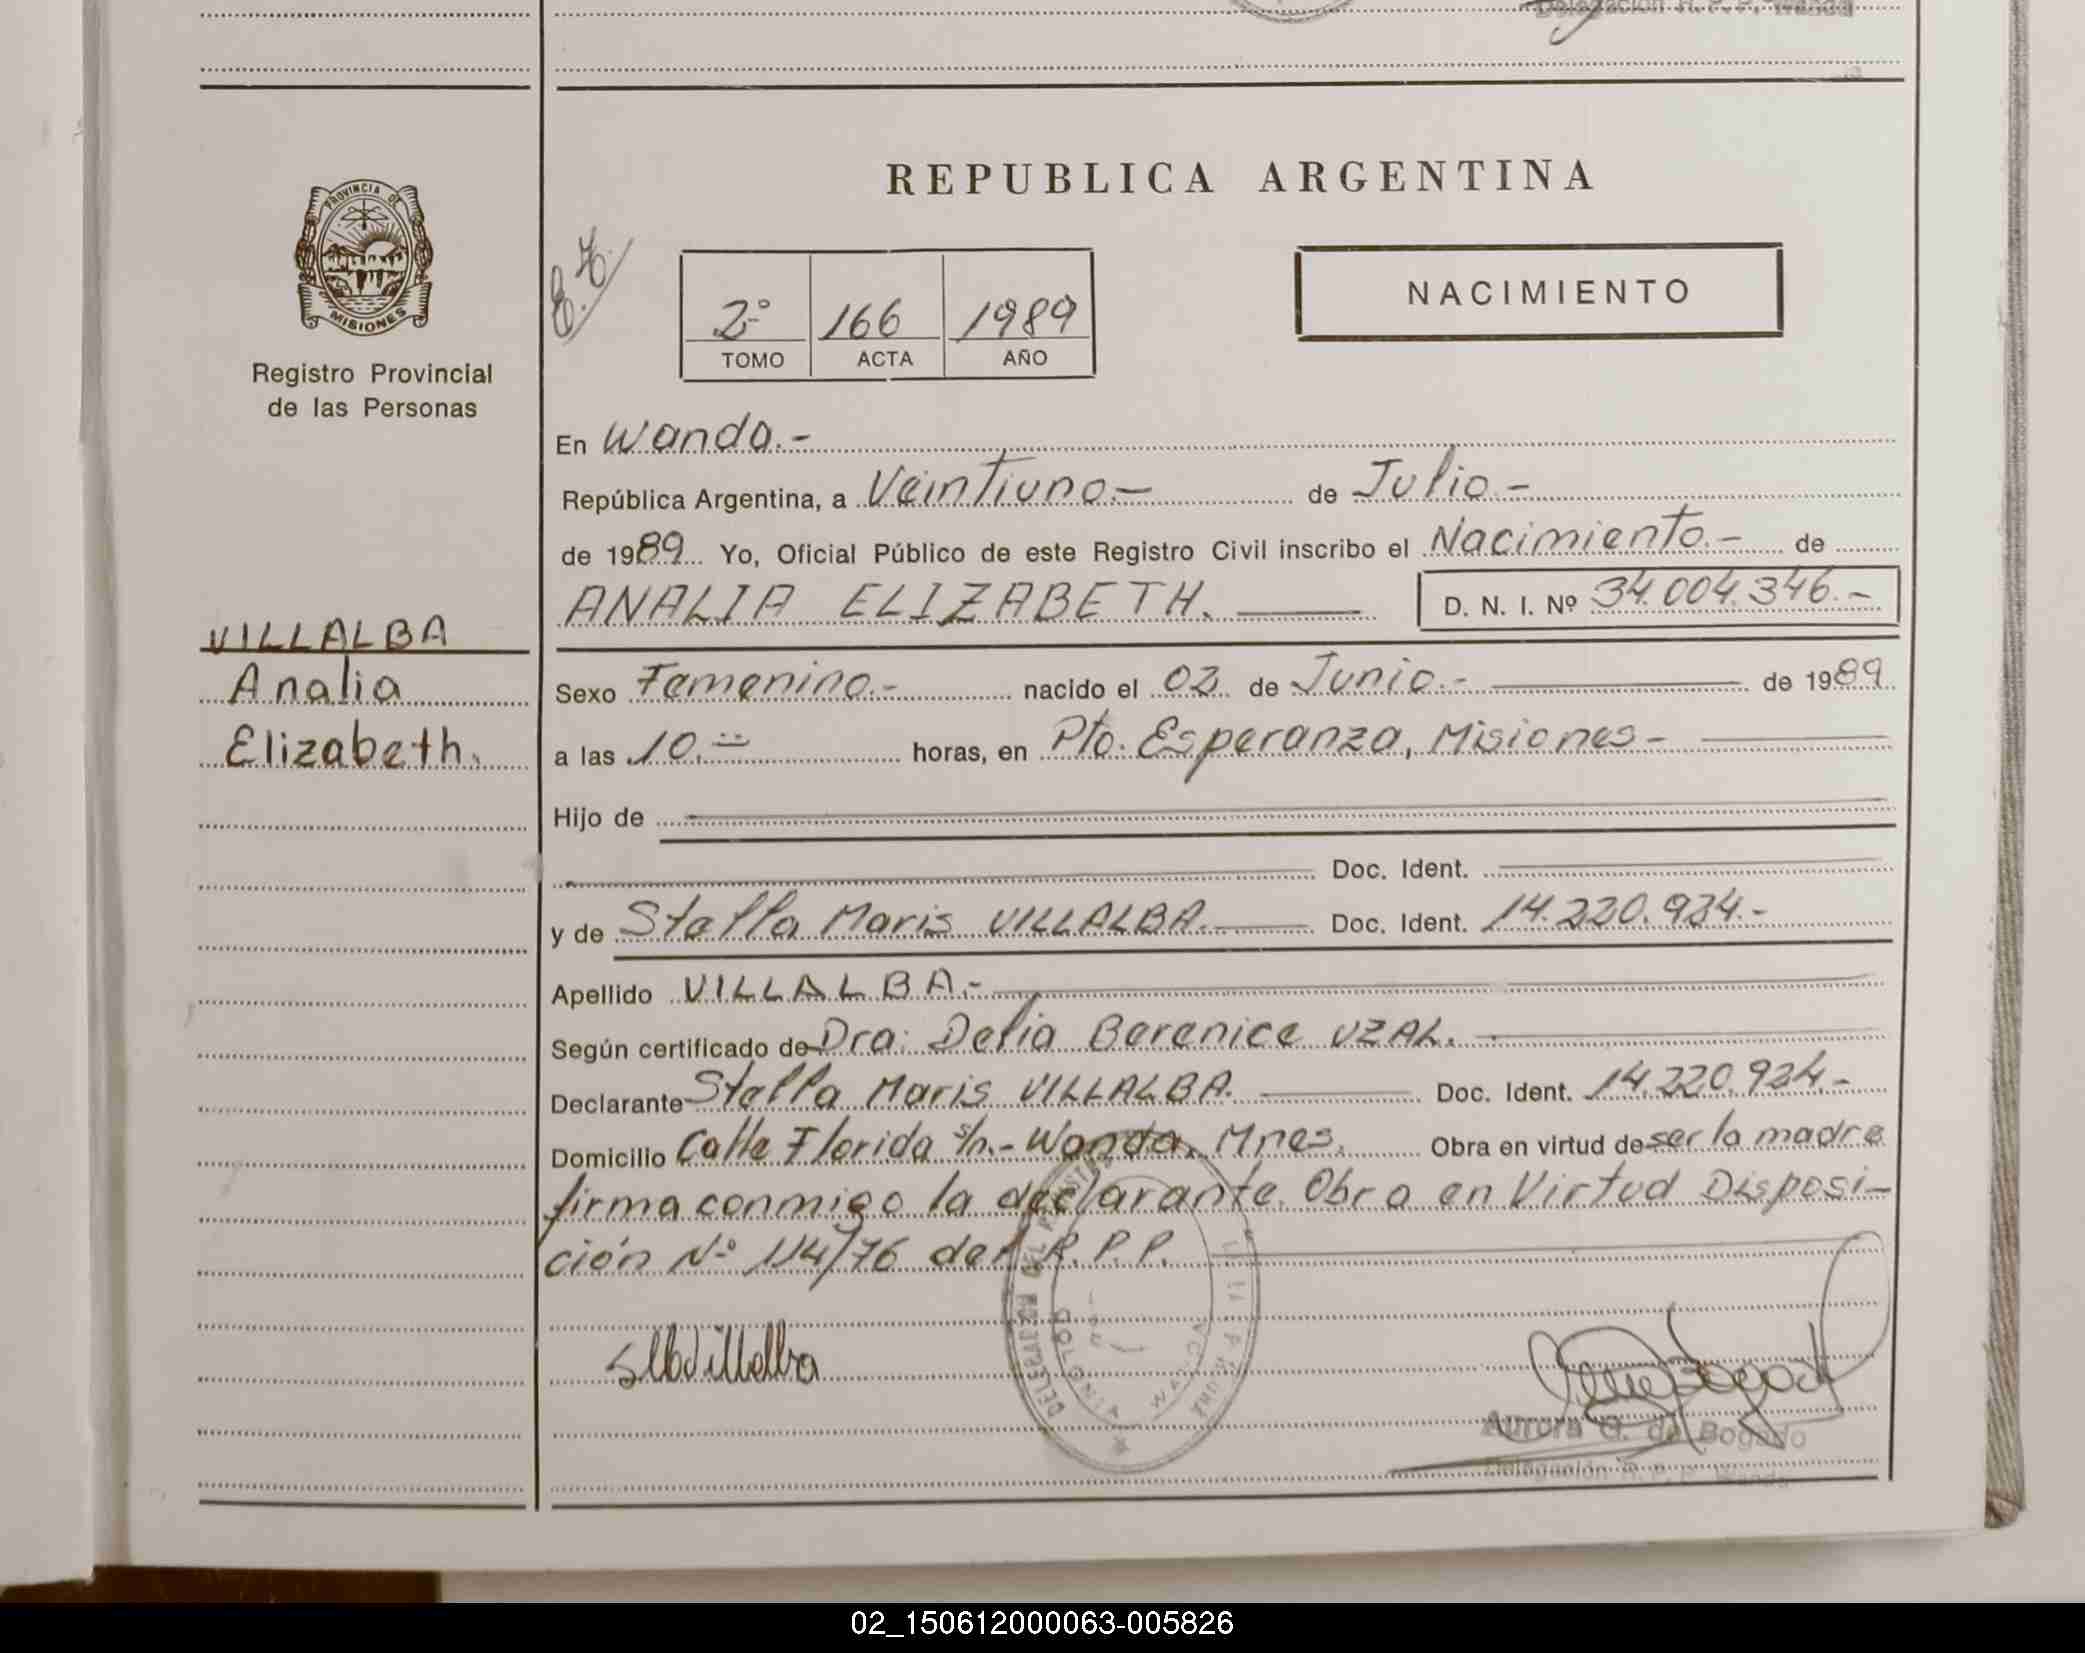 Delegación R. P. P. Wanda
REPUBLICA ARGENTINA
PROVINCIA DE
MISIONES
Registro Provincial
de las Personas
2º 166 1989
TOMO ACTA AÑO
NACIMIENTO
En Wanda.-
República Argentina, a Veintiuno.- de Julio.-
de 1989 Yo, Oficial Público de este Registro Civil inscribo el Nacimiento.- de
ANALIA ELIZABETH. D. N. I. Nº 34.004.346.-
VILLALBA
Analia
Elizabeth.
Sexo Femenino.- nacido el 03 de Junio.- de 1989
a las 10.- horas, en Pto. Esperanza, Misiones-
Hijo de
Doc. Ident.
y de Stella Maris VILLALBA. Doc. Ident. 14.220.924.-
Apellido VILLALBA.-
Según certificado de Dra. Delia Berenice UZAL.
Declarante Stella Maris VILLALBA. Doc. Ident. 14.220.924-
Domicilio Calle Florida s/n.- Wanda, Mnes. Obra en virtud de ser la madre
firma conmigo la declarante. Obro en Virtud Disposi-
ción Nº 114/76 del R.P.P.
Aurora G. de Bogado
Delegación R. P. P. Wanda
02_150612000063-005826